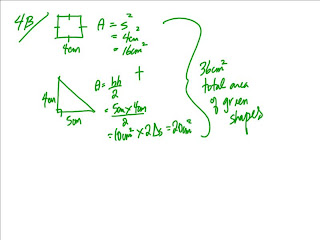 4B/
A = s²
= 4cm²
= 16cm²
4cm
+
4cm
5cm
A = bh/2
= 5cm x 4cm/2
= 10cm² x 2 Δs = 20cm²
36cm²
total area
of green
shapes